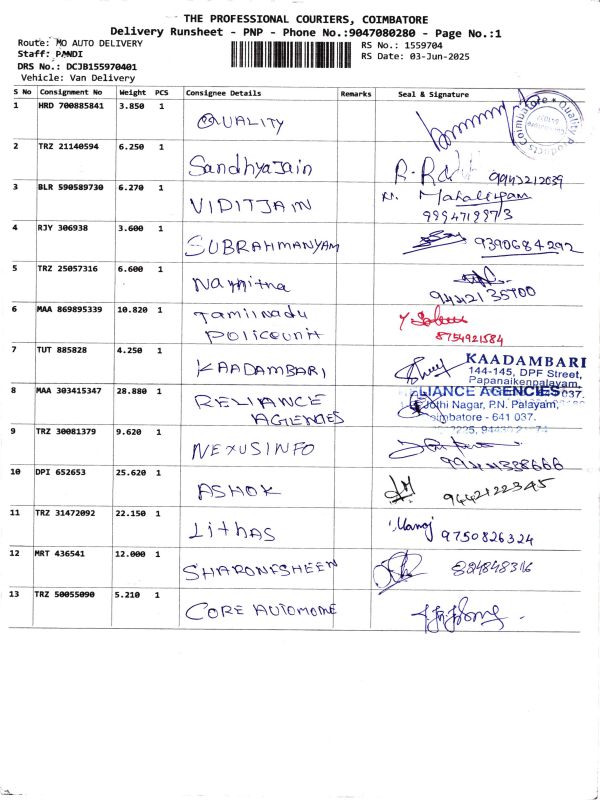 THE PROFESSIONAL COURIERS, COIMBATORE
Delivery Runsheet - PNP - Phone No.:9047080280 - Page No.:1
Route: MO AUTO DELIVERY
RS No.: 1559704
Staff: PANDI
RS Date: 03-Jun-2025
DRS No.: DCJB155970401
Vehicle: Van Delivery
S No Consignment No Weight PCS Consignee Details Remarks Seal & Signature
1 HRD 700885841 3.850 1 QUALITY
Coimbatore * Quality Products
2 TRZ 21140594 6.250 1 Sandhya Jain 9943212039
3 BLR 590589730 6.270 1 VIDIT JAIN
4 RJY 306938 3.600 1 SUBRAHMANYAM 9390684292
5 TRZ 25057316 6.600 1
6 MAA 869895339 10.820 1 Tamilnadu
Policeunit 8754921584
7 TUT 885828 4.250 1 KAADAMBARI
KAADAMBARI
144-145, DPF Street,
Papanaikenpalayam,
037.
8 MAA 303415347 28.880 1 RELIANCE
AGENCIES
RELIANCE AGENCIES
Jothi Nagar, P.N. Palayam,
Coimbatore - 641 037.
9 TRZ 30081379 9.620 1 NEXUS INFO
10 DPI 652653 25.620 1 ASHOK 9442122345
11 TRZ 31472092 22.150 1 Lithas Manoj 9750826324
12 MRT 436541 12.000 1 SHARONFSHEEN
13 TRZ 50055090 5.210 1 CORE AUTOMOME